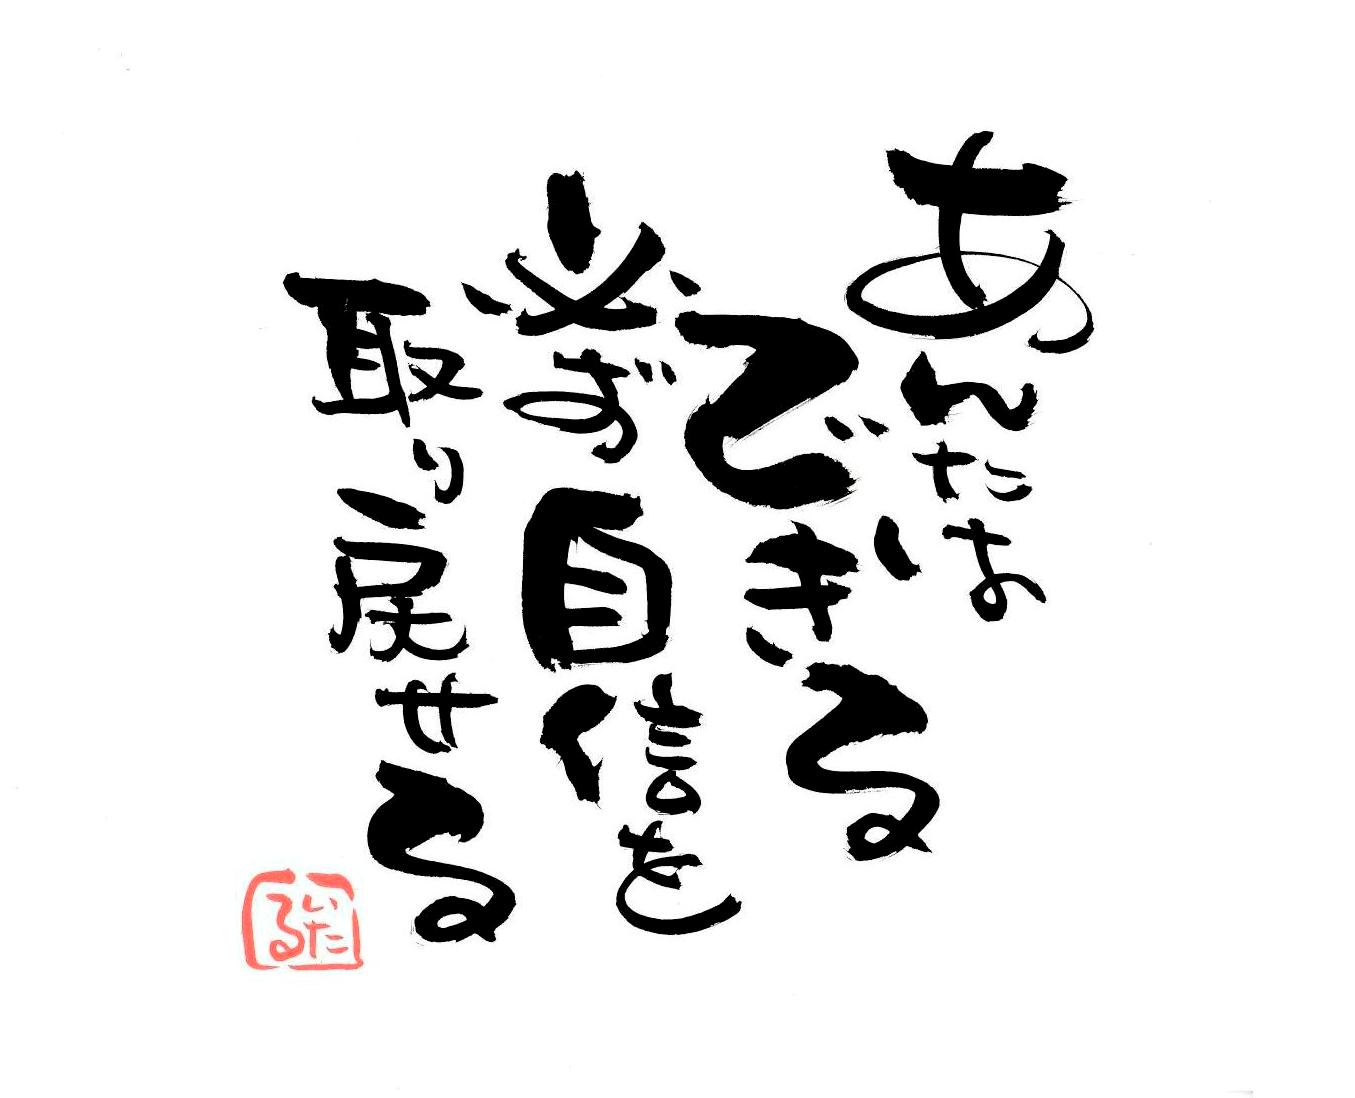 あんたは
できる
必ず自信を
取り戻せる
いたる